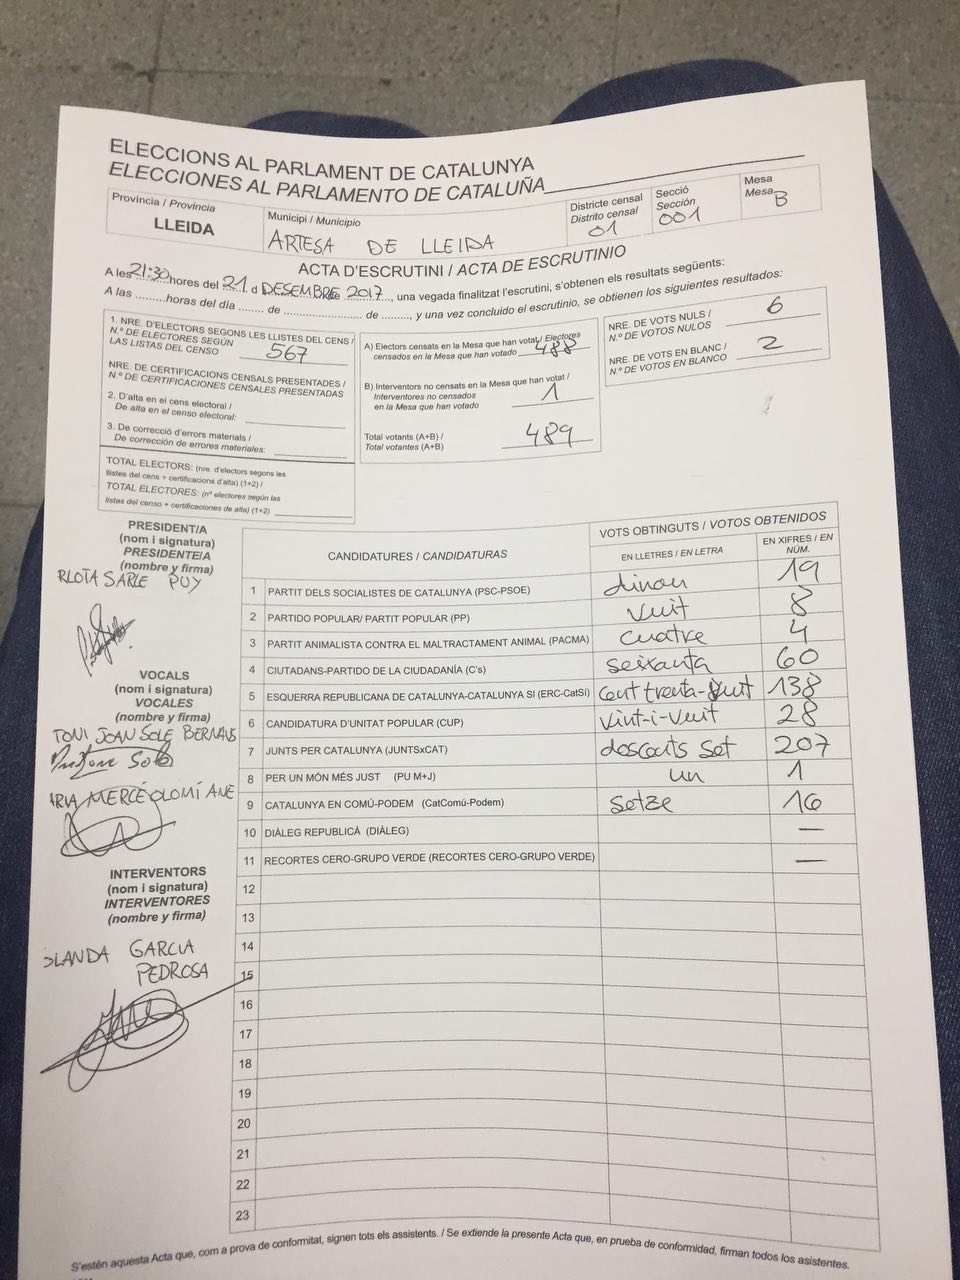 ELECCIONS AL PARLAMENT DE CATALUNYA
ELECCIONES AL PARLAMENTO DE CATALUÑA
Província / Provincia
LLEIDA
Municipi / Municipio
ARTESA DE LLEIDA
Districte censal
Distrito censal
01
Secció
Sección
001
Mesa
Mesa
B
ACTA D'ESCRUTINI / ACTA DE ESCRUTINIO
A les 21:30 hores del 21 d DESEMBRE de 2017, una vegada finalitzat l'escrutini, s'obtenen els resultats següents:
A las .........horas del día ........ de .............................. de ........., y una vez concluido el escrutinio, se obtienen los siguientes resultados:
1. NRE. D'ELECTORS SEGONS LES LLISTES DEL CENS /
N.º DE ELECTORES SEGÚN
LAS LISTAS DEL CENSO 567
NRE. DE CERTIFICACIONS CENSALS PRESENTADES /
N.º DE CERTIFICACIONES CENSALES PRESENTADAS
2. D'alta en el cens electoral /
De alta en el censo electoral:
3. De correcció d'errors materials /
De corrección de errores materiales:
TOTAL ELECTORS: (nre. d'electors segons les
llistes del cens + certificacions d'alta) (1+2) /
TOTAL ELECTORES: (nº electores según las
listas del censo + certificaciones de alta) (1+2)
A) Electors censats en la Mesa que han votat / Electores
censados en la Mesa que han votado 488
B) Interventors no censats en la Mesa que han votat /
Interventores no censados
en la Mesa que han votado 1
Total votants (A+B) /
Total votantes (A+B) 489
NRE. DE VOTS NULS /
N.º DE VOTOS NULOS 6
NRE. DE VOTS EN BLANC /
N.º DE VOTOS EN BLANCO 2
PRESIDENT/A
(nom i signatura)
PRESIDENTE/A
(nombre y firma)
RLOTA SARLE PUY
VOCALS
(nom i signatura)
VOCALES
(nombre y firma)
TONI JOAN SOLE BERNAUS
ARIA MERCÈ OLOMÍ ANE
INTERVENTORS
(nom i signatura)
INTERVENTORES
(nombre y firma)
OLANDA GARCIA
PEDROSA
CANDIDATURES / CANDIDATURAS
VOTS OBTINGUTS / VOTOS OBTENIDOS
EN LLETRES / EN LETRA
EN XIFRES / EN
NÚM.
1 PARTIT DELS SOCIALISTES DE CATALUNYA (PSC-PSOE) dinou 19
2 PARTIDO POPULAR/ PARTIT POPULAR (PP) vuit 8
3 PARTIT ANIMALISTA CONTRA EL MALTRACTAMENT ANIMAL (PACMA) cuatre 4
4 CIUTADANS-PARTIDO DE LA CIUDADANÍA (C's) seixanta 60
5 ESQUERRA REPUBLICANA DE CATALUNYA-CATALUNYA SI (ERC-CatSí) cent trenta-vuit 138
6 CANDIDATURA D'UNITAT POPULAR (CUP) vint-i-vuit 28
7 JUNTS PER CATALUNYA (JUNTSxCAT) doscents set 207
8 PER UN MÓN MÉS JUST (PU M+J) un 1
9 CATALUNYA EN COMÚ-PODEM (CatComú-Podem) setze 16
10 DIÀLEG REPUBLICÀ (DIÀLEG) —
11 RECORTES CERO-GRUPO VERDE (RECORTES CERO-GRUPO VERDE) —
12
13
14
15
16
17
18
19
20
21
22
23
S'estén aquesta Acta que, com a prova de conformitat, signen tots els assistents. / Se extiende la presente Acta que, en prueba de conformidad, firman todos los asistentes.